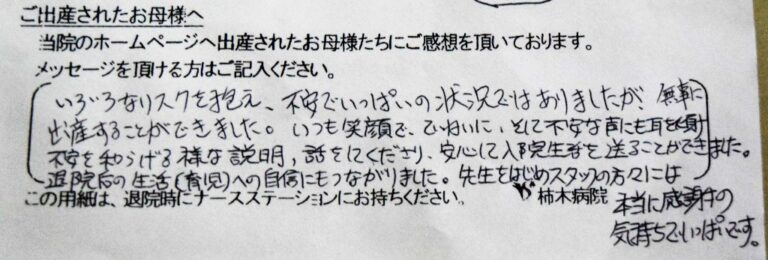 ご出産されたお母様へ
当院のホームページへ出産されたお母様たちにご感想を頂いております。
メッセージを頂ける方はご記入ください。
いろいろなリスクを抱え、不安でいっぱいの状況ではありましたが、無事に
出産することができました。いつも笑顔で、ていねいに、そして不安な声にも耳を傾け
不安を和らげる様な説明,話をしてくださり、安心して入院生活を送ることができました。
退院后の生活(育児)への自信にもつながりました。先生をはじめスタッフの方々には
本当に感謝の
気持ちでいっぱいです。
この用紙は、退院時にナースステーションにお持ちください。 柿木病院